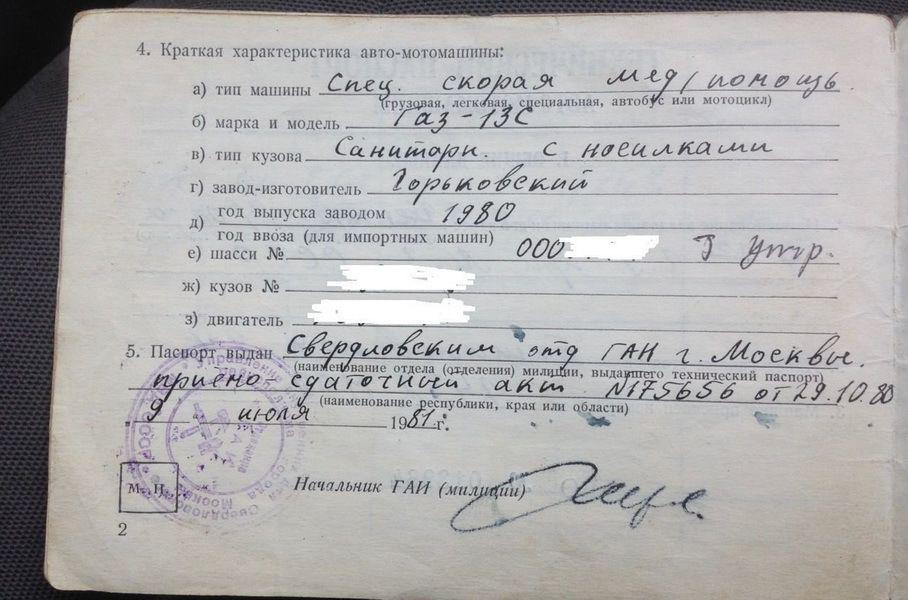 4. Краткая характеристика авто-мотомашины:
а) тип машины Спец. скорая мед/помощь
(грузовая, легковая, специальная, автобус или мотоцикл)
б) марка и модель Газ-13С
в) тип кузова Санитарн. с носилками
г) завод-изготовитель Горьковский
д) год выпуска заводом 1980
год ввоза (для импортных машин)
е) шасси № 000
ж) кузов №
з) двигатель
5. Паспорт выдан Свердловским отд ГАИ г. Москвы.
(наименование отдела (отделения) милиции, выдавшего технический паспорт)
приемо-сдаточный акт №175656 от 29.10.80
(наименование республики, края или области)
9 июля 1981 г.
М. П.
Начальник ГАИ (милиции)
2